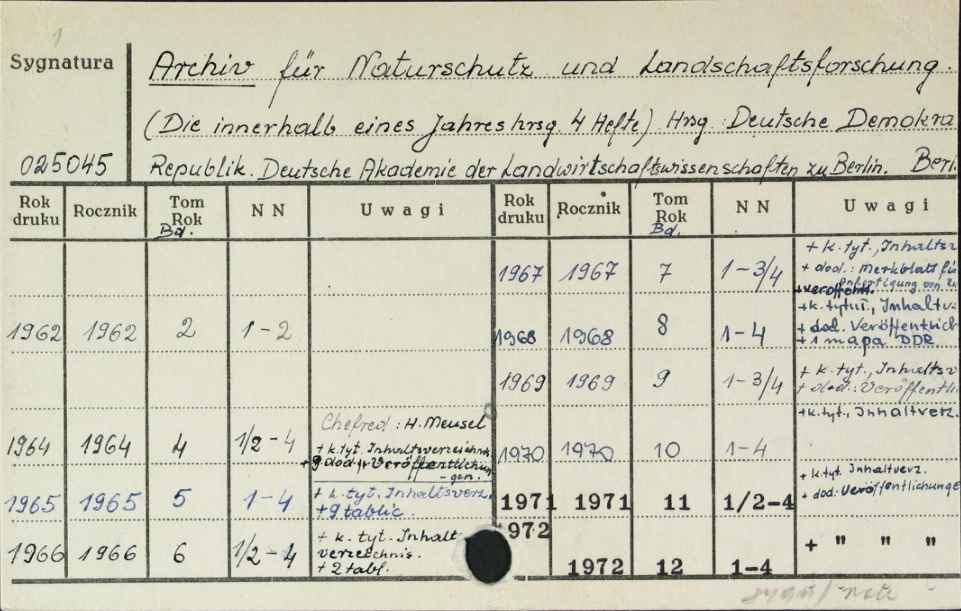 1
Sygnatura
Archiv für Naturschutz und Landschaftsforschung.
(Die innerhalb eines Jahres hrsg. 4 Hefte) Hrsg. Deutsche Demokra
025045
Republik. Deutsche Akademie der Landwirtschaftswissenschaften zu Berlin. Berl.
Rok druku Rocznik Tom Rok Bd. NN Uwagi Rok druku Rocznik Tom Rok Bd. NN Uwagi
1967 1967 7 1-3/4 + k. tyt., Inhaltsv
+ dod.: Merkblatt fü
+ veröffentl.
1962 1962 2 1-2
1968 1968 8 1-4 + k. tytuł., Inhaltv
+ dod. Veröffentlich
+ 1 mapa DDR
1969 1969 9 1-3/4 + k. tyt., Inhaltsv
+ dod.: Veröffentli
1964 1964 4 1/2-4 Chefred: H. Meusel
+ k. tyt. Inhaltsverzeichnis
+ 9 dod. Veröffentlichun-
gen.
1970 1970 10 1-4 + k. tyt., Inhaltverz.
1965 1965 5 1-4 + k. tyt., Inhaltsverz.
+ 9 tablic.
1971 1971 11 1/2-4 + k. tyt. Inhaltverz.
+ dod: Veröffentlichunge
1966 1966 6 1/2-4 + k. tyt. Inhalt
verzeichnis.
+ 2 tabl.
1972 1972 12 1-4 + " " "